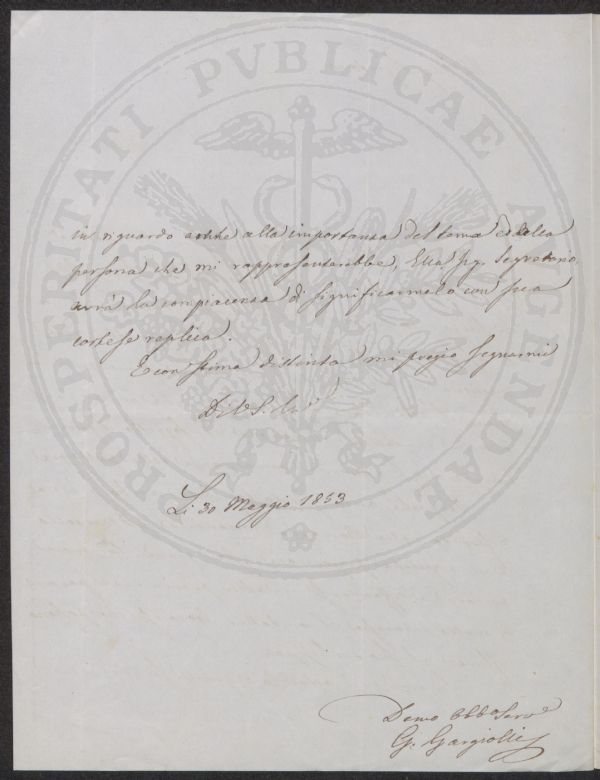 PROSPERITATI PVBLICAE AVGENDAE
in riguardo anche alla importanza del tema e della
persona che mi rappresenterebbe, Ella Sig. Segretario
avrà la compiacenza di significarmelo con sua
cortese replica.
E con stima distinta mi pregio segnarmi
Di V. S. Ill
Li 30 Maggio 1853
Devmo Obbo Serv
G. Gargiolli